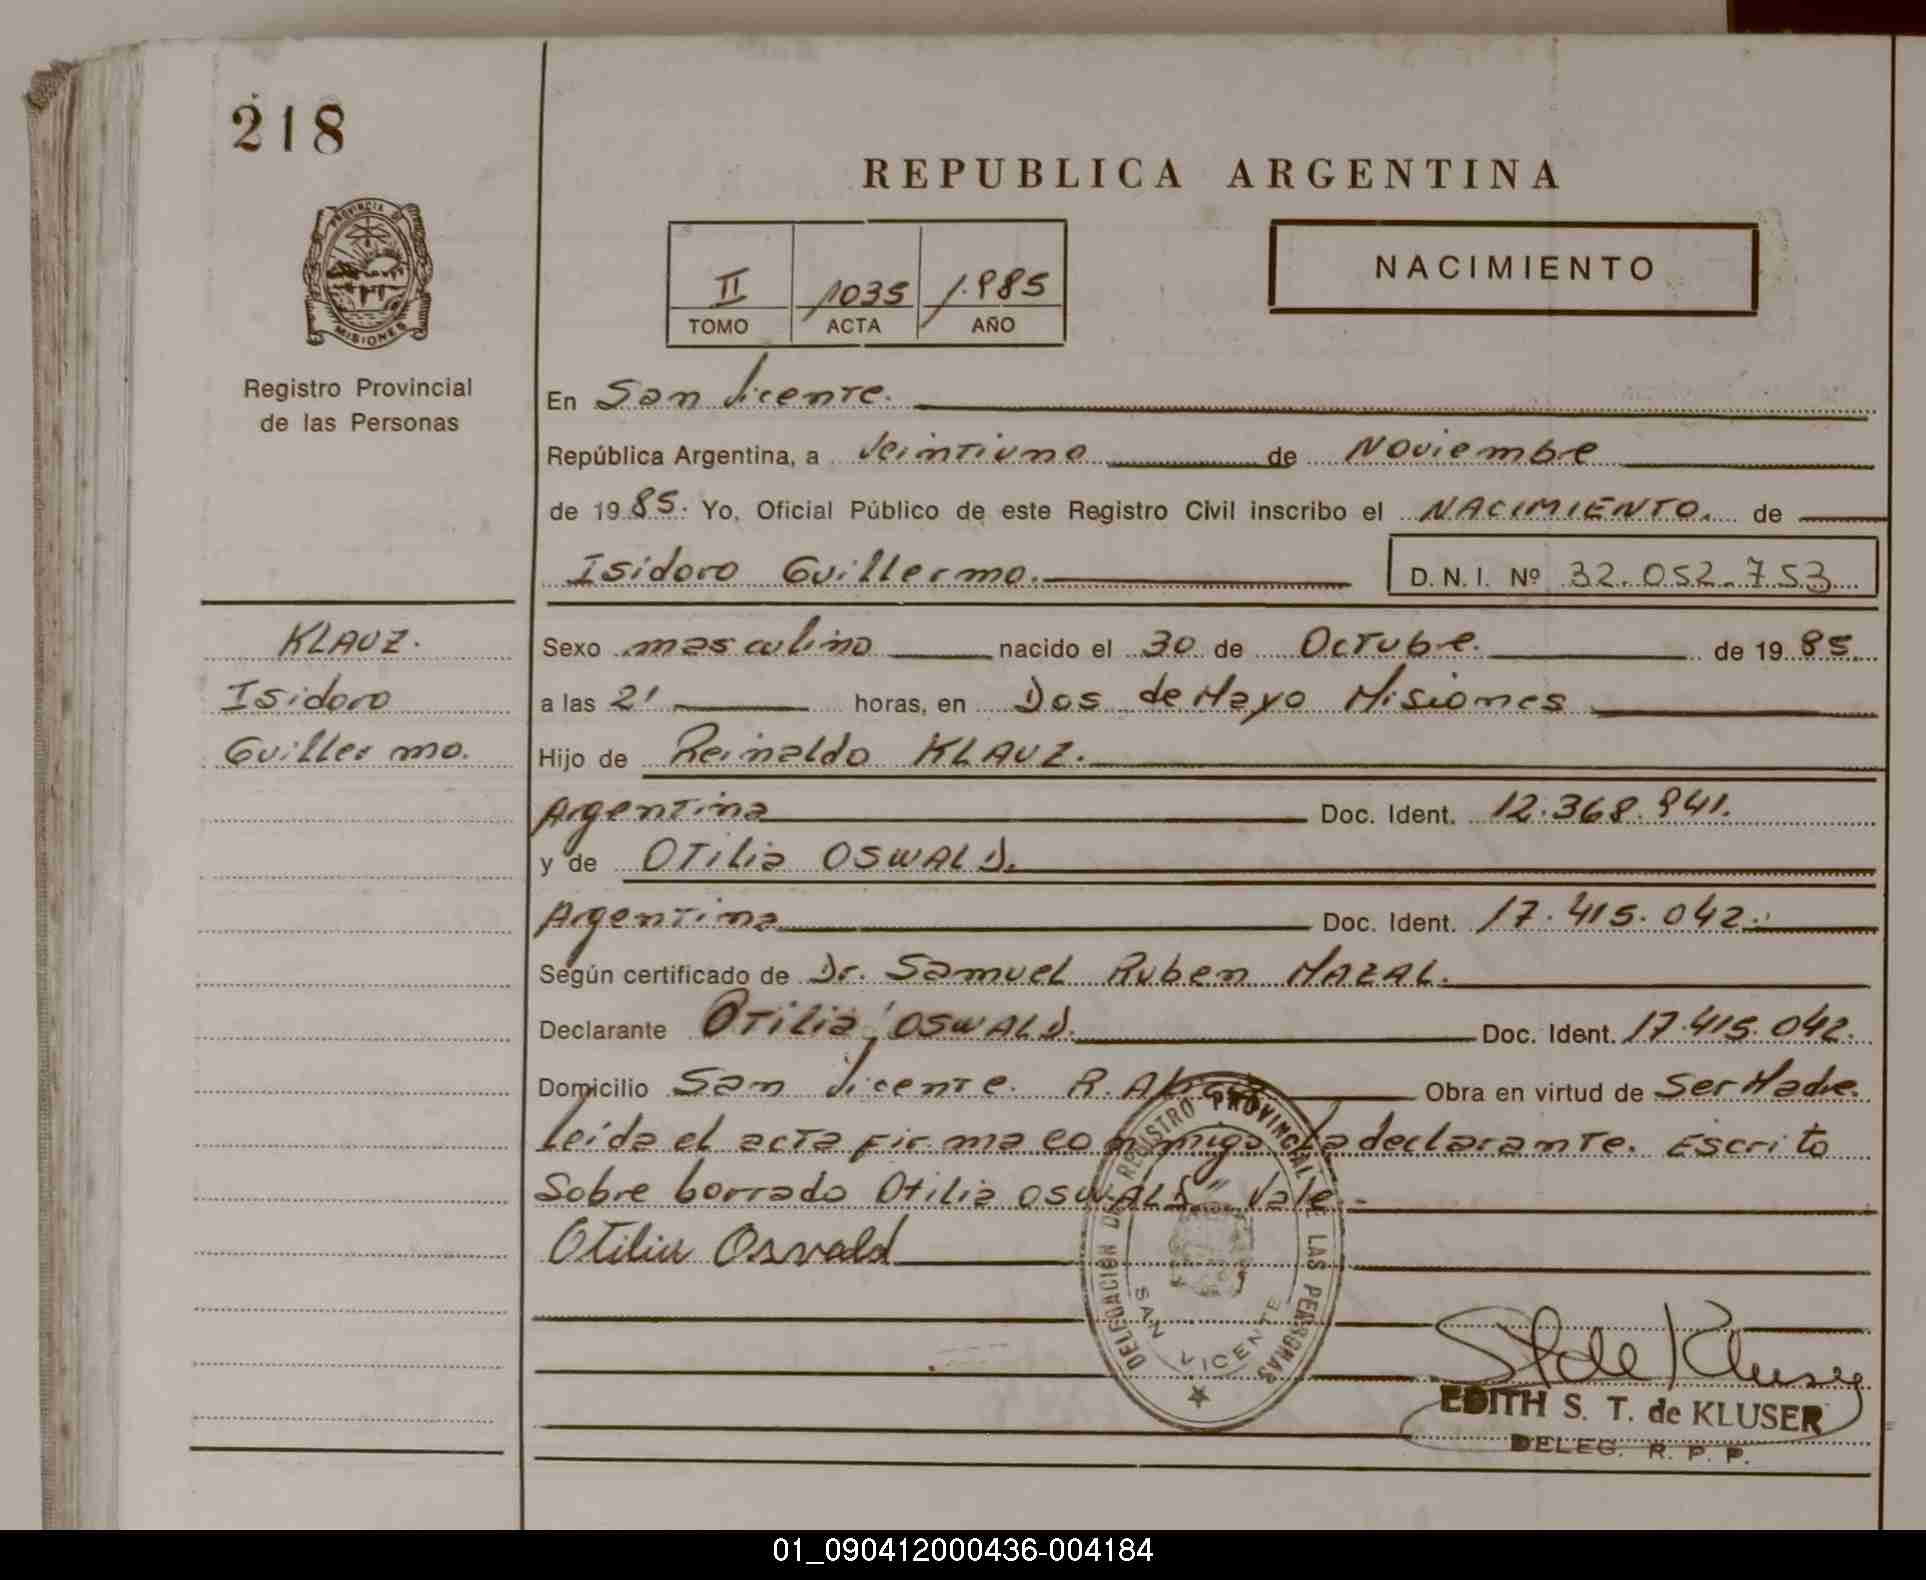 218
REPUBLICA ARGENTINA
PROVINCIA DE
MISIONES
Registro Provincial
de las Personas
II 1035 1.985
TOMO ACTA AÑO
NACIMIENTO
En San Vicente.
República Argentina, a Veintiuno de Noviembre
de 1985. Yo, Oficial Público de este Registro Civil inscribo el NACIMIENTO. de
Isidoro Guillermo. D. N. I. Nº 32.052.753
KLAUZ.
Isidoro
Guillermo.
Sexo masculino nacido el 30 de Octubre. de 1985.
a las 21 horas, en Dos de Mayo Misiones
Hijo de Reinaldo KLAUZ.
Argentina Doc. Ident. 12.368.941.
y de OTilia OSWALD.
Argentina Doc. Ident. 17.415.042.
Según certificado de Dr. Samuel Ruben MAZAL.
Declarante OTilia OSWALD. Doc. Ident. 17.415.042.
Domicilio San Vicente. Obra en virtud de Ser Madre.
Leída el acta firma conmigo la declarante. Escrito
Sobre borrado Otilia OSWALD" Vale.-
Otilia Osvald
DELEGACION DEL REGISTRO PROVINCIAL DE LAS PERSONAS
SAN VICENTE
St de Kluser
EDITH S. T. de KLUSER
DELEG. R. P. P.
01_090412000436-004184